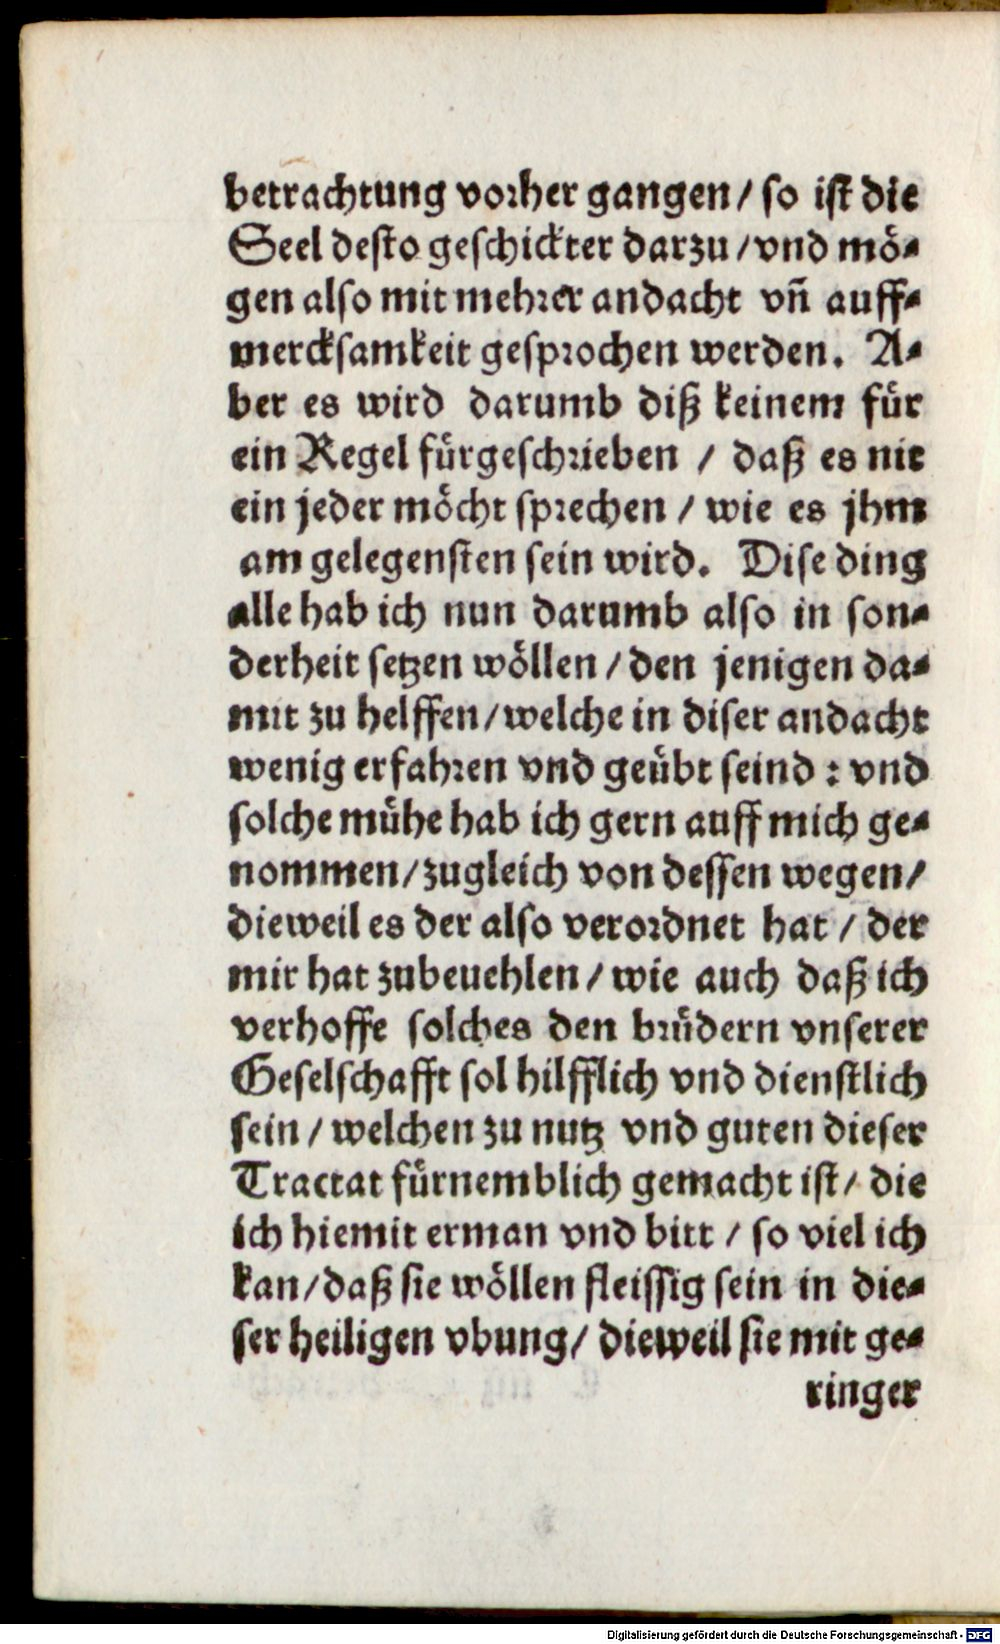 betrachtung vorher gangen/ so ist die
Seel desto geschickter darzu/vnd mö-
gen also mit mehrer andacht vñ auff-
mercksamkeit gesprochen werden. A-
ber es wird darumb diß keinem für
ein Regel fürgeschrieben / daß es nit
ein jeder möcht sprechen / wie es jhm
am gelegensten sein wird. Dise ding
alle hab ich nun darumb also in son-
derheit setzen wöllen/den jenigen da-
mit zu helffen/welche in diser andacht
wenig erfahren vnd geübt seind : vnd
solche mühe hab ich gern auff mich ge-
nommen/zugleich von dessen wegen/
dieweil es der also verordnet hat / der
mir hat zubeuehlen/ wie auch daß ich
verhoffe solches den brüdern vnserer
Geselschafft sol hilfflich vnd dienstlich
sein / welchen zu nutz vnd guten dieser
Tractat fürnemblich gemacht ist/ die
ich hiemit erman vnd bitt / so viel ich
kan/daß sie wöllen fleissig sein in die-
ser heiligen vbung/ dieweil sie mit ge-
ringer
Digitalisierung gefördert durch die Deutsche Forschungsgemeinschaft - DFG